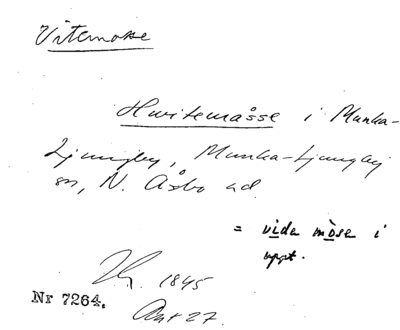 Vitemosse
Hvitemåsse i Munka-
Ljungby, Munka-Ljungby
sn, N. Åsbo hd
= vida mòse i
uppt.
1845
Nr 7264. Akt 27.